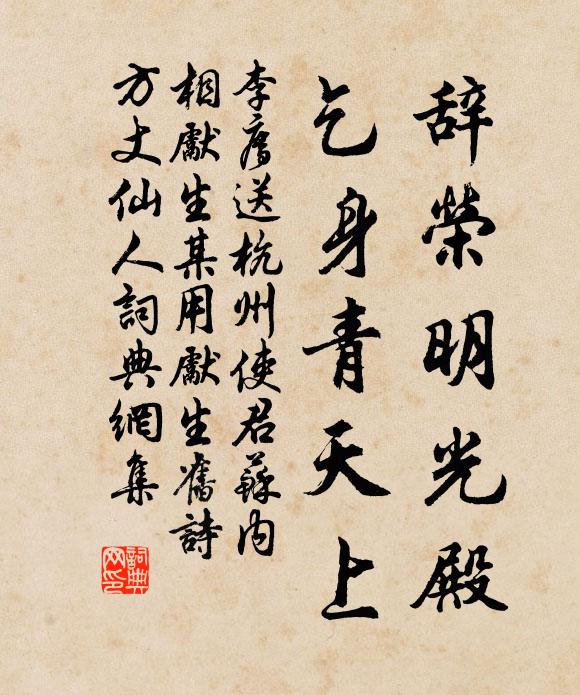 辞榮明光殿
乞身青天上
李廌送杭州使君蘇内
相獻生某用獻生舊詩
方丈仙人詞典網集
詞典网印